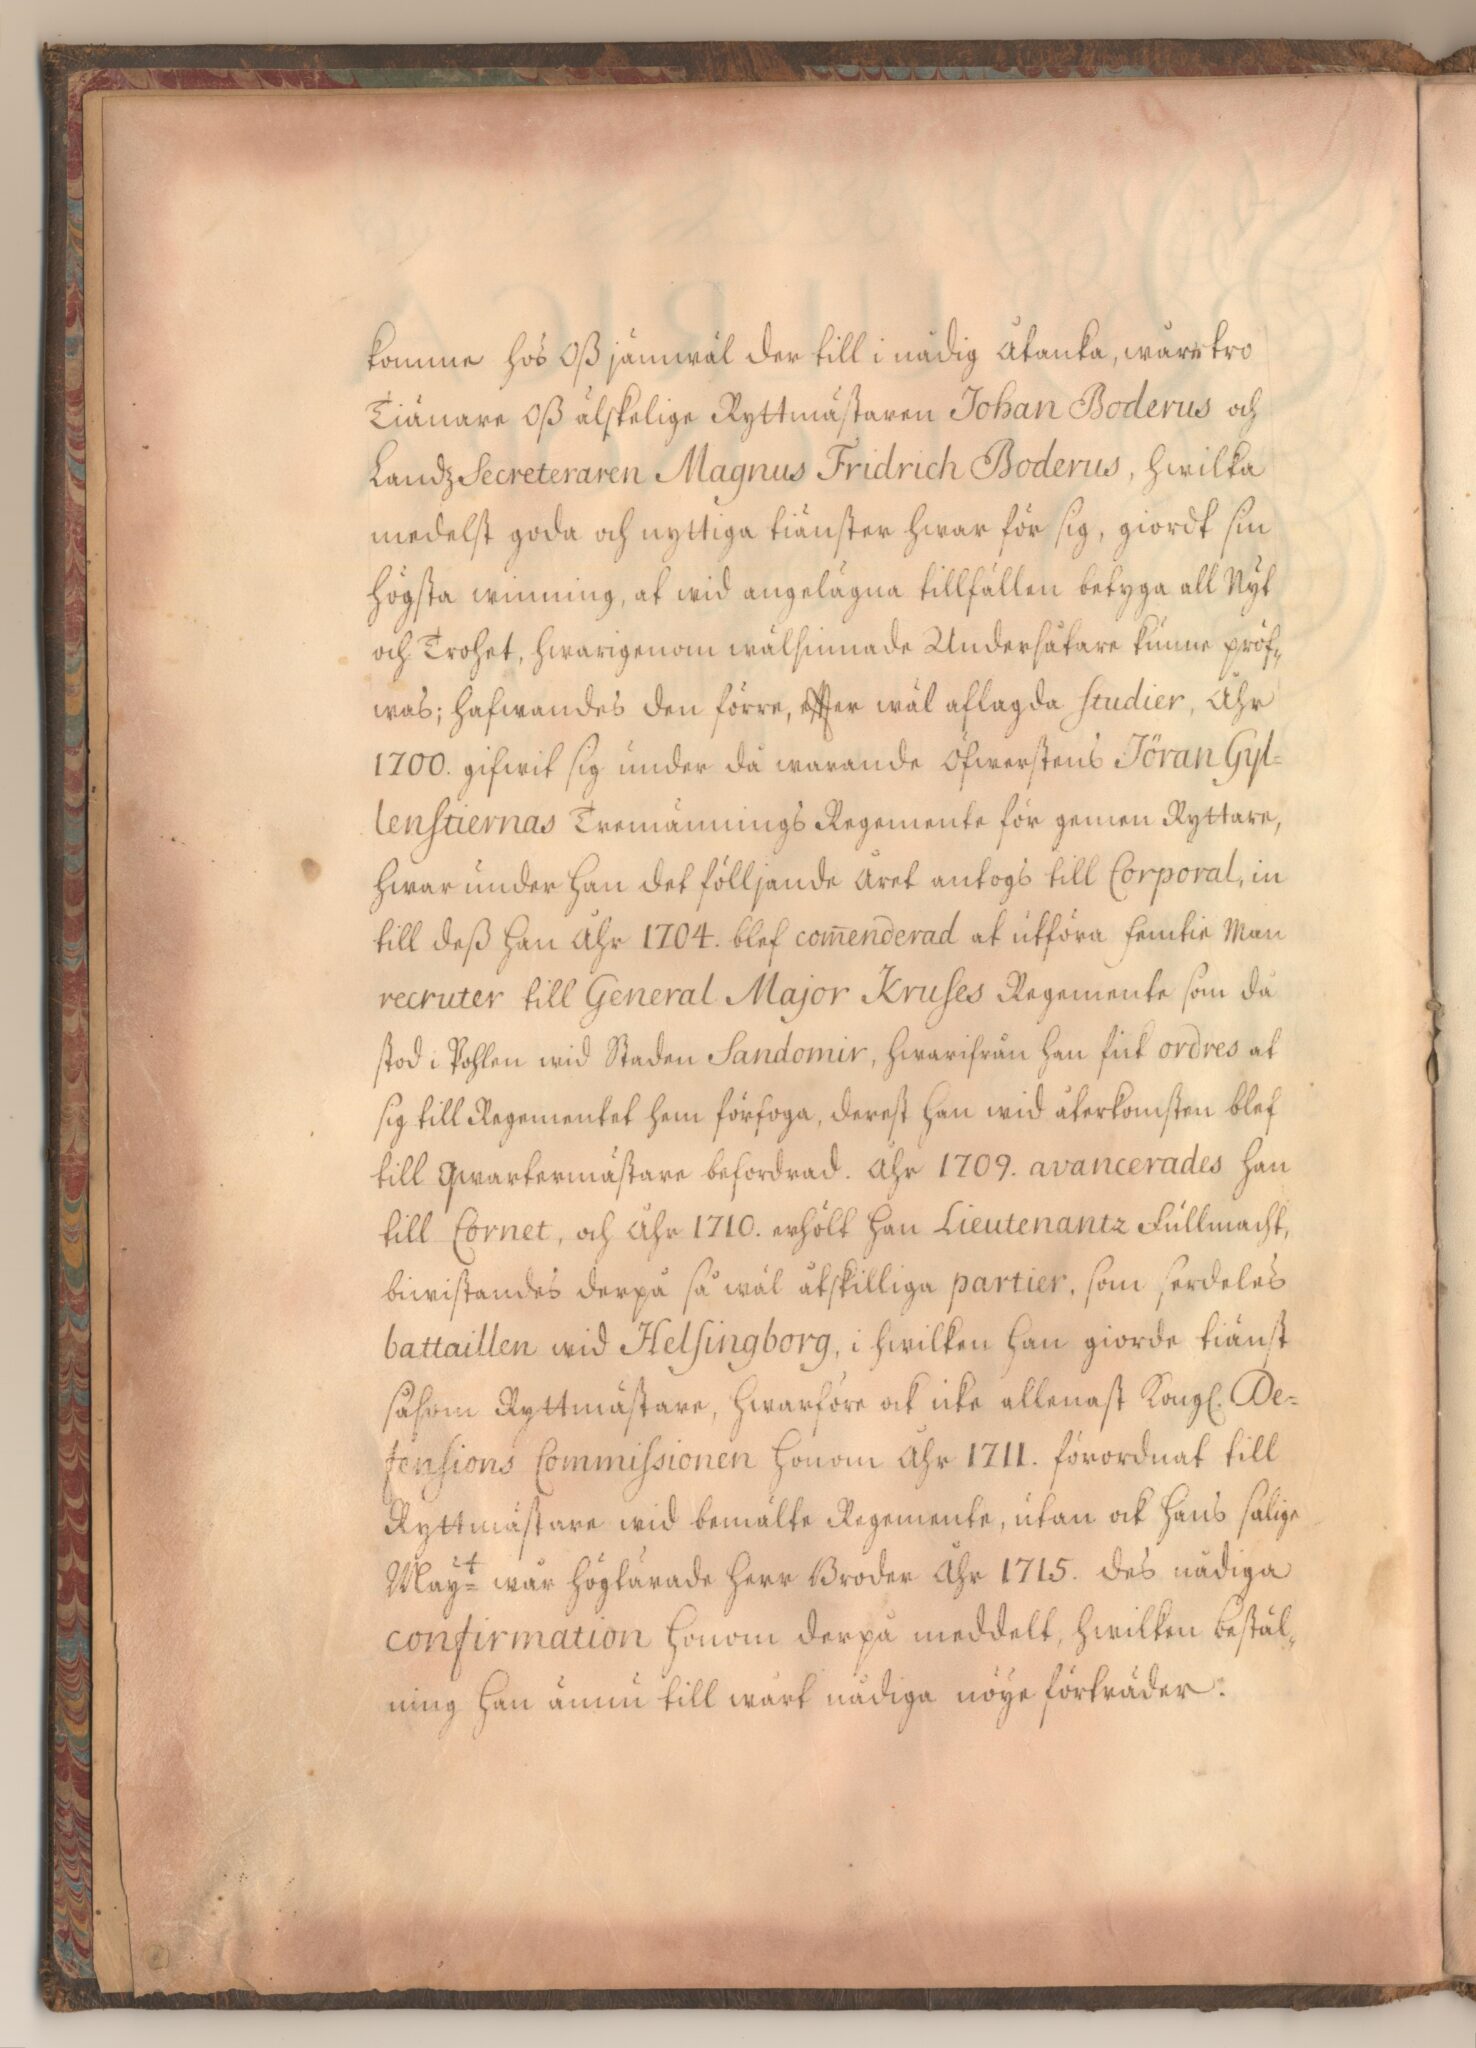 komme hos Oß jämwäl der till i nådig åtanka, wåre tro
Tiänare Oß älskelige Ryttmästaren Johan Boderus och
Landz Secreteraren Magnus Fridrich Boderus, hwilka
medelst goda och nyttiga tiänster hwar för sig, giordt sin
högsta winning, at wid angelägna tillfällen betyga all Nyt
och Trohet, hwarigenom wälsinnade Undersåtare kunne pröf„
was; hafwandes den förre, efter wäl aflagda Studier, Åhr
1700. gifwit sig under då warande Öfwerstens Jöran Gyl=
lenstiernas Tremännings Regemente för gemen Ryttare,
hwar under han det följjande året antogs till Corporal, in
till deß han Åhr 1704. blef com̃enderad at utföra femtie Man
recruter till General Major Kruses Regemente som då
stod i Pohlen wid Staden Sandomir, hwarifrån han fick ordres at
sig till Regementet hem förfoga, derest han wid återkomsten blef
till Qwartermästare befordrad. Åhr 1709. avancerades han
till Cornet, och Åhr 1710. erhölt han Lieutenantz Fullmacht,
biwistandes derpå så wäl åtskilliga partier, som serdeles
battaillen wid Helsingborg, i hwilken han giorde tiänst
såsom Ryttmästare, hwarföre ock icke allenast Kongl. De=
fensions Commissionen honom Åhr 1711. förordnat till
Ryttmästare wid bemälte Regemente, utan ock hans salige
May:t wår högtärade Herr Broder Åhr 1715. des nådiga
confirmation honom derpå meddelt, hwilken bestäl„
ning han ännu till wårt nådiga nöye förträder.